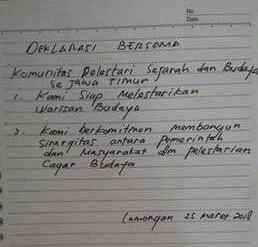 No
Date
DEKLARASI BERSAMA
Komunitas Pelestari Sejarah dan Budaya
se Jawa Timur
1. Kami Siap Melestarikan
Warisan Budaya
2. Kami berkomitmen membangun
Sinergitas antara Pemerintah
dan Masyarakat dlm pelestarian
Cagar Budaya
Lamongan 25 maret 2018